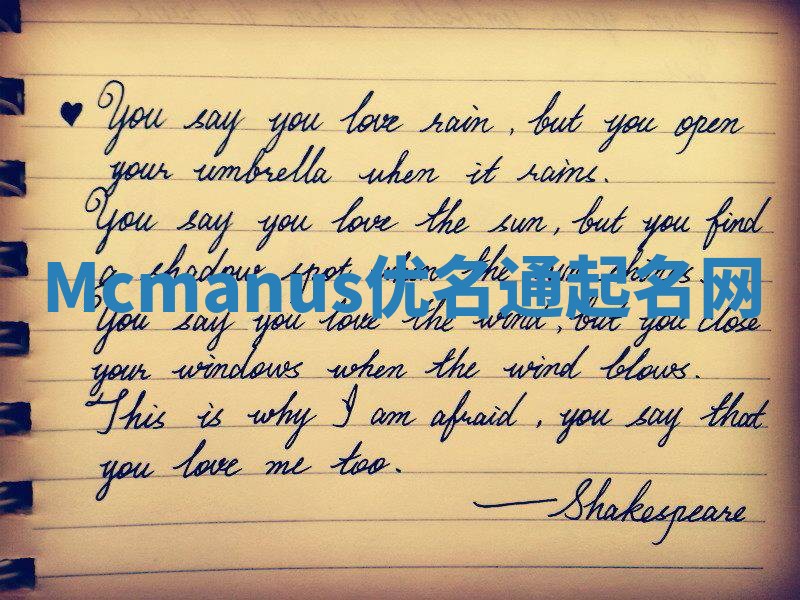 ♥ You say you love rain, but you open
your umbrella when it rains.
You say you love the sun, but you find
a shadow spot when the sun shines.
Mcmanus优名通起名网
You say you love the wind, but you close
your windows when the wind blows.
This is why I am afraid, you say that
you love me too.
— Shakespeare